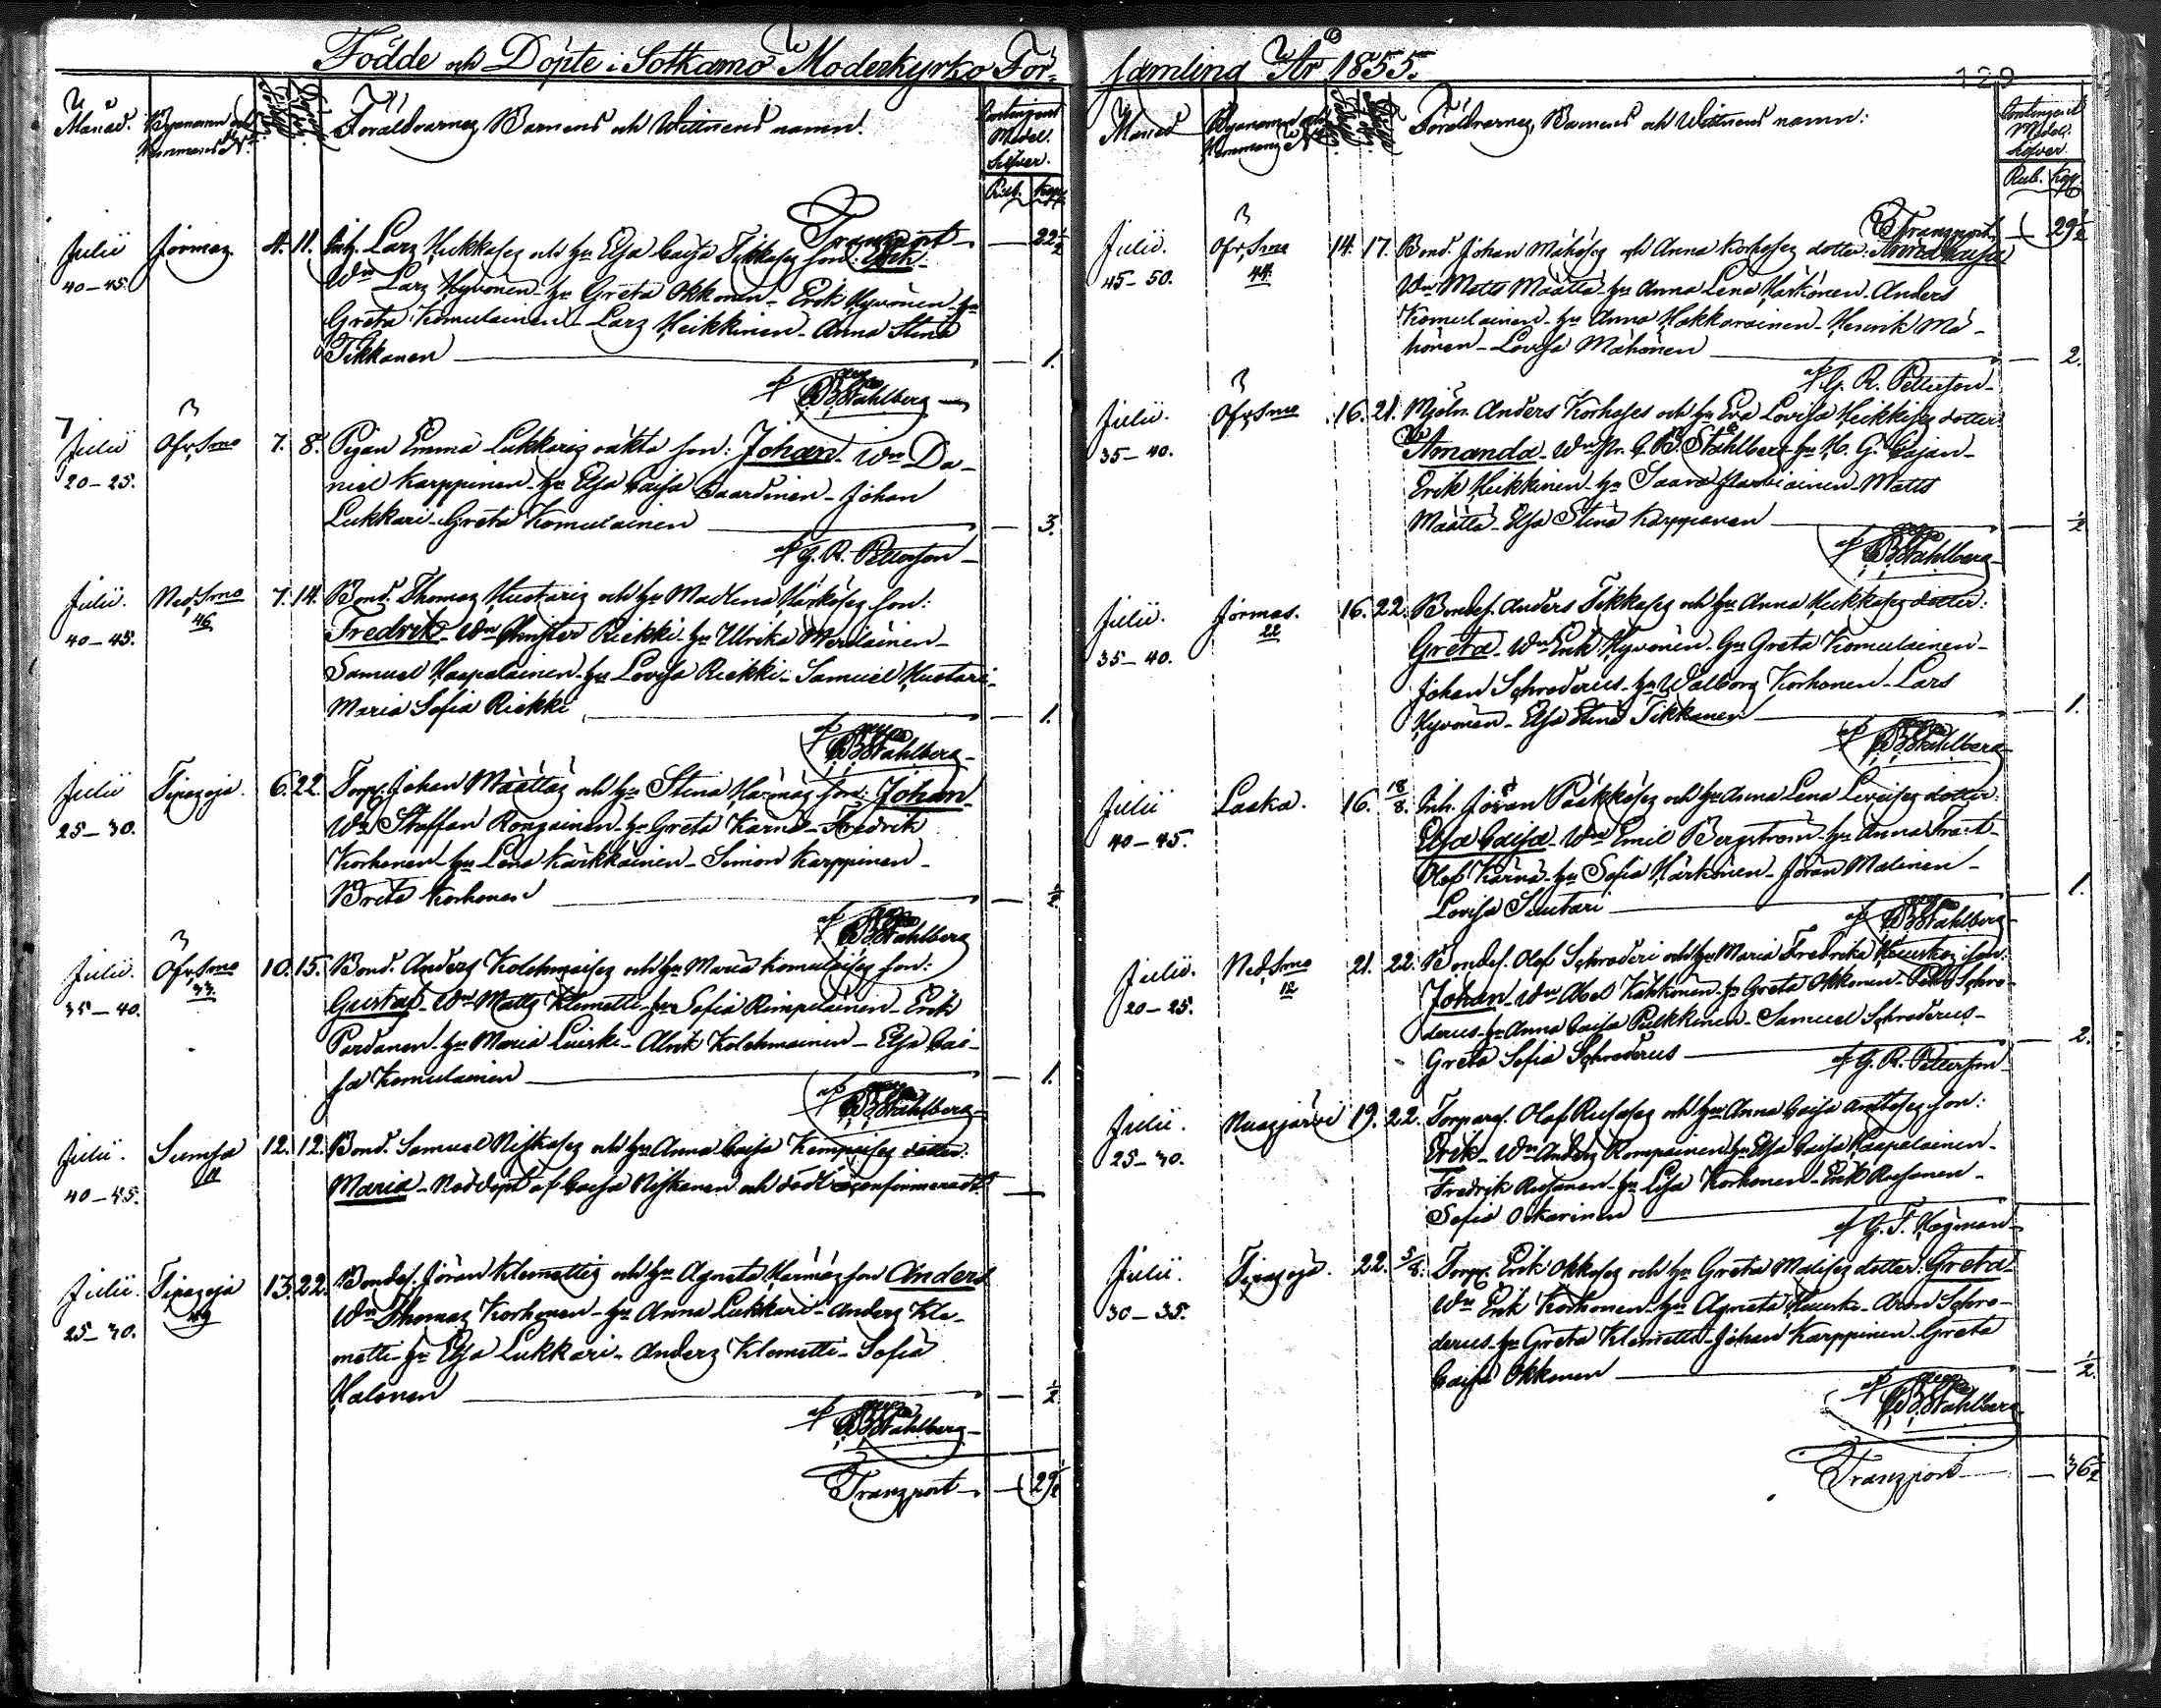 Födde och Döpte i Sotkamo Moderkyrko För-
Månad. Bynamn och Hemmans No.
Föräldrarnes, Barnens och Wittnens namn.
Contingent Medel. Silfver.
Rub. Kop.
Transport — 22 1/2
Julii Jormas. 4. 11. Inh. Lars Heikkises och hu Elsa Caisa Tikkases son: Erik
40-45. Wn Lars Hyvönen - hu Greta Okkonen - Erik Hyvönen - hu
Greta Komulainen - Lars Heikkinen - Anna Stina
Tikkanen — 1.
af B. Ståhlberg
Julii Öfv. Smo 7. 8. Pigan Emma Lukkaris oäkta son: Johan - Wn Da-
20-25. niel Karppinen - hu Elsa Caisa - Johan
Lukkari - Greta Komulainen — 3.
af G. R. Petterson
Julii. Ned. Smo 7. 14. Bond. Thomas Hustaris och hu Madlena Härköses son:
40-45. 46 Fredrik - Wn Riekki - hu Ulrika Meriläinen -
Samuel Haapalainen - hu Lovisa Riekki - Samuel Hustari -
Maria Sofia Riekki — 1.
af B. Ståhlberg
Julii Tipasoja. 6. 22. Torp. Johan Määttäs och hu Stina Härmäs son: Johan
25-30. Wn Staffan Rongainen - hu Greta Kärnä - Fredrik
Korhonen - hu Lena Kärkkäinen - Simon Karppinen -
Breta Korhonen — 1/2
af B. Ståhlberg
Julii. Öfv. Smo 10. 15. Bond. Anders Kolehmaises och hu Maria Komulaises son:
35-40. 33 Gustaf - Wn Matts Klemetti - hu Sofia Rimpiläinen - Erik
Pardanen - hu Maria Leiviskä - Alrik Kolehmainen - Elsa Cai-
sa Komulainen — 1.
af B. Ståhlberg
Julii. Sumsa 12. 12. Bond. Samuel Niskases och hu Anna Caisa dotter:
40-45. 11 Maria - Nöddöpt af Caisa Niskanen och död oconfirmeradt —
Julii. Tipasoja 13. 22. Bondes. Jöran Klemettis och hu Agneta Härmäs son Anders
25-30. 49 Wn Thomas Korhonen - hu Anna Lukkari - Anders Kle-
metti - hu Elsa Lukkari - Anders Klemetti - Sofia
Halonen — 1/2
af B. Ståhlberg
Transport — 29 1/2
samling År 1855.
129
Månad Bynamn och Hemmans No
Föräldrarnes, Barnens och Wittnens namn:
Contingent Medel. Silfver.
Rub. Kop
Transport — 29 1/2
Julii. Öfv. Smo 14. 17. Bond. Johan Mähöses och Anna Korhoses dotter: Anna Caisa
45-50. 44. Wn Matts Määttä - hu Anna Lena Härkönen - Anders
Komulainen - hu Anna Hakkarainen - Henrik Mä-
hönen - Lovisa Mähönen — 2.
af G. R. Petterson
Julii. Öfv. Smo 16. 21. Mjöln. Anders Korhoses och hu Eva Lovisa Heikkises dotter:
35-40. Amanda - Wn B. Ståhlberg - hu H. G. Cajan -
Erik Heikkinen - hu Saara - Matts
Määttä - Elsa Stina Karppanen — 1/2
af B. Ståhlberg
Julii. Jormas. 16. 22. Bondes. Anders Tikkases och hu Anna Heikkises dotter:
35-40. 22 Greta - Wn Erik Hyvönen - hu Greta Komulainen -
Johan Schroderus - hu Walborg Korhonen - Lars
Hyvönen - Elsa Stina Tikkanen — 1.
af B. Ståhlberg
Julii Laaka. 16. 18/8. Inh. Jöran Pääkköses och hu Anna Lena dotter:
40-45. Elsa Caisa - Wn Emil Bergström - hu Anna -
Olof Kärnä - hu Sofia Härkönen - Jöran Malinen -
Lovisa Suutari — 1.
af B. Ståhlberg
Julii. Ned. Smo 21. 22. Bondes. Olof Schroderi och hu Maria Fredrika son:
20-25. 12 Johan - Wn Abel Kähkönen - hu Greta Okkonen - Schro-
derus - hu Anna Caisa Pulkkinen - Samuel Schroderus -
Greta Sofia Schroderus — 2.
af G. R. Petterson
Julii. Nuasjärvi 19. 22. Torpares. Olof och hu Anna Caisa son:
25-30. Erik - Wn Anders Romppainen - hu Elsa Caisa Haapalainen -
Fredrik - hu Lisa Korhonen - Erik -
Sofia Oikarinen —
af G. F. Hagman
Julii. Tipasoja. 22. 5/8. Torp. Erik Okkoses och hu Greta Malises dotter: Greta
30-35. Wn Erik Korhonen - hu Agneta - Aron Schro-
derus - hu Greta Klemetti - Johan Karppinen - Greta
Caisa Okkonen — 1/2.
af B. Ståhlberg
Transport — 36 1/2